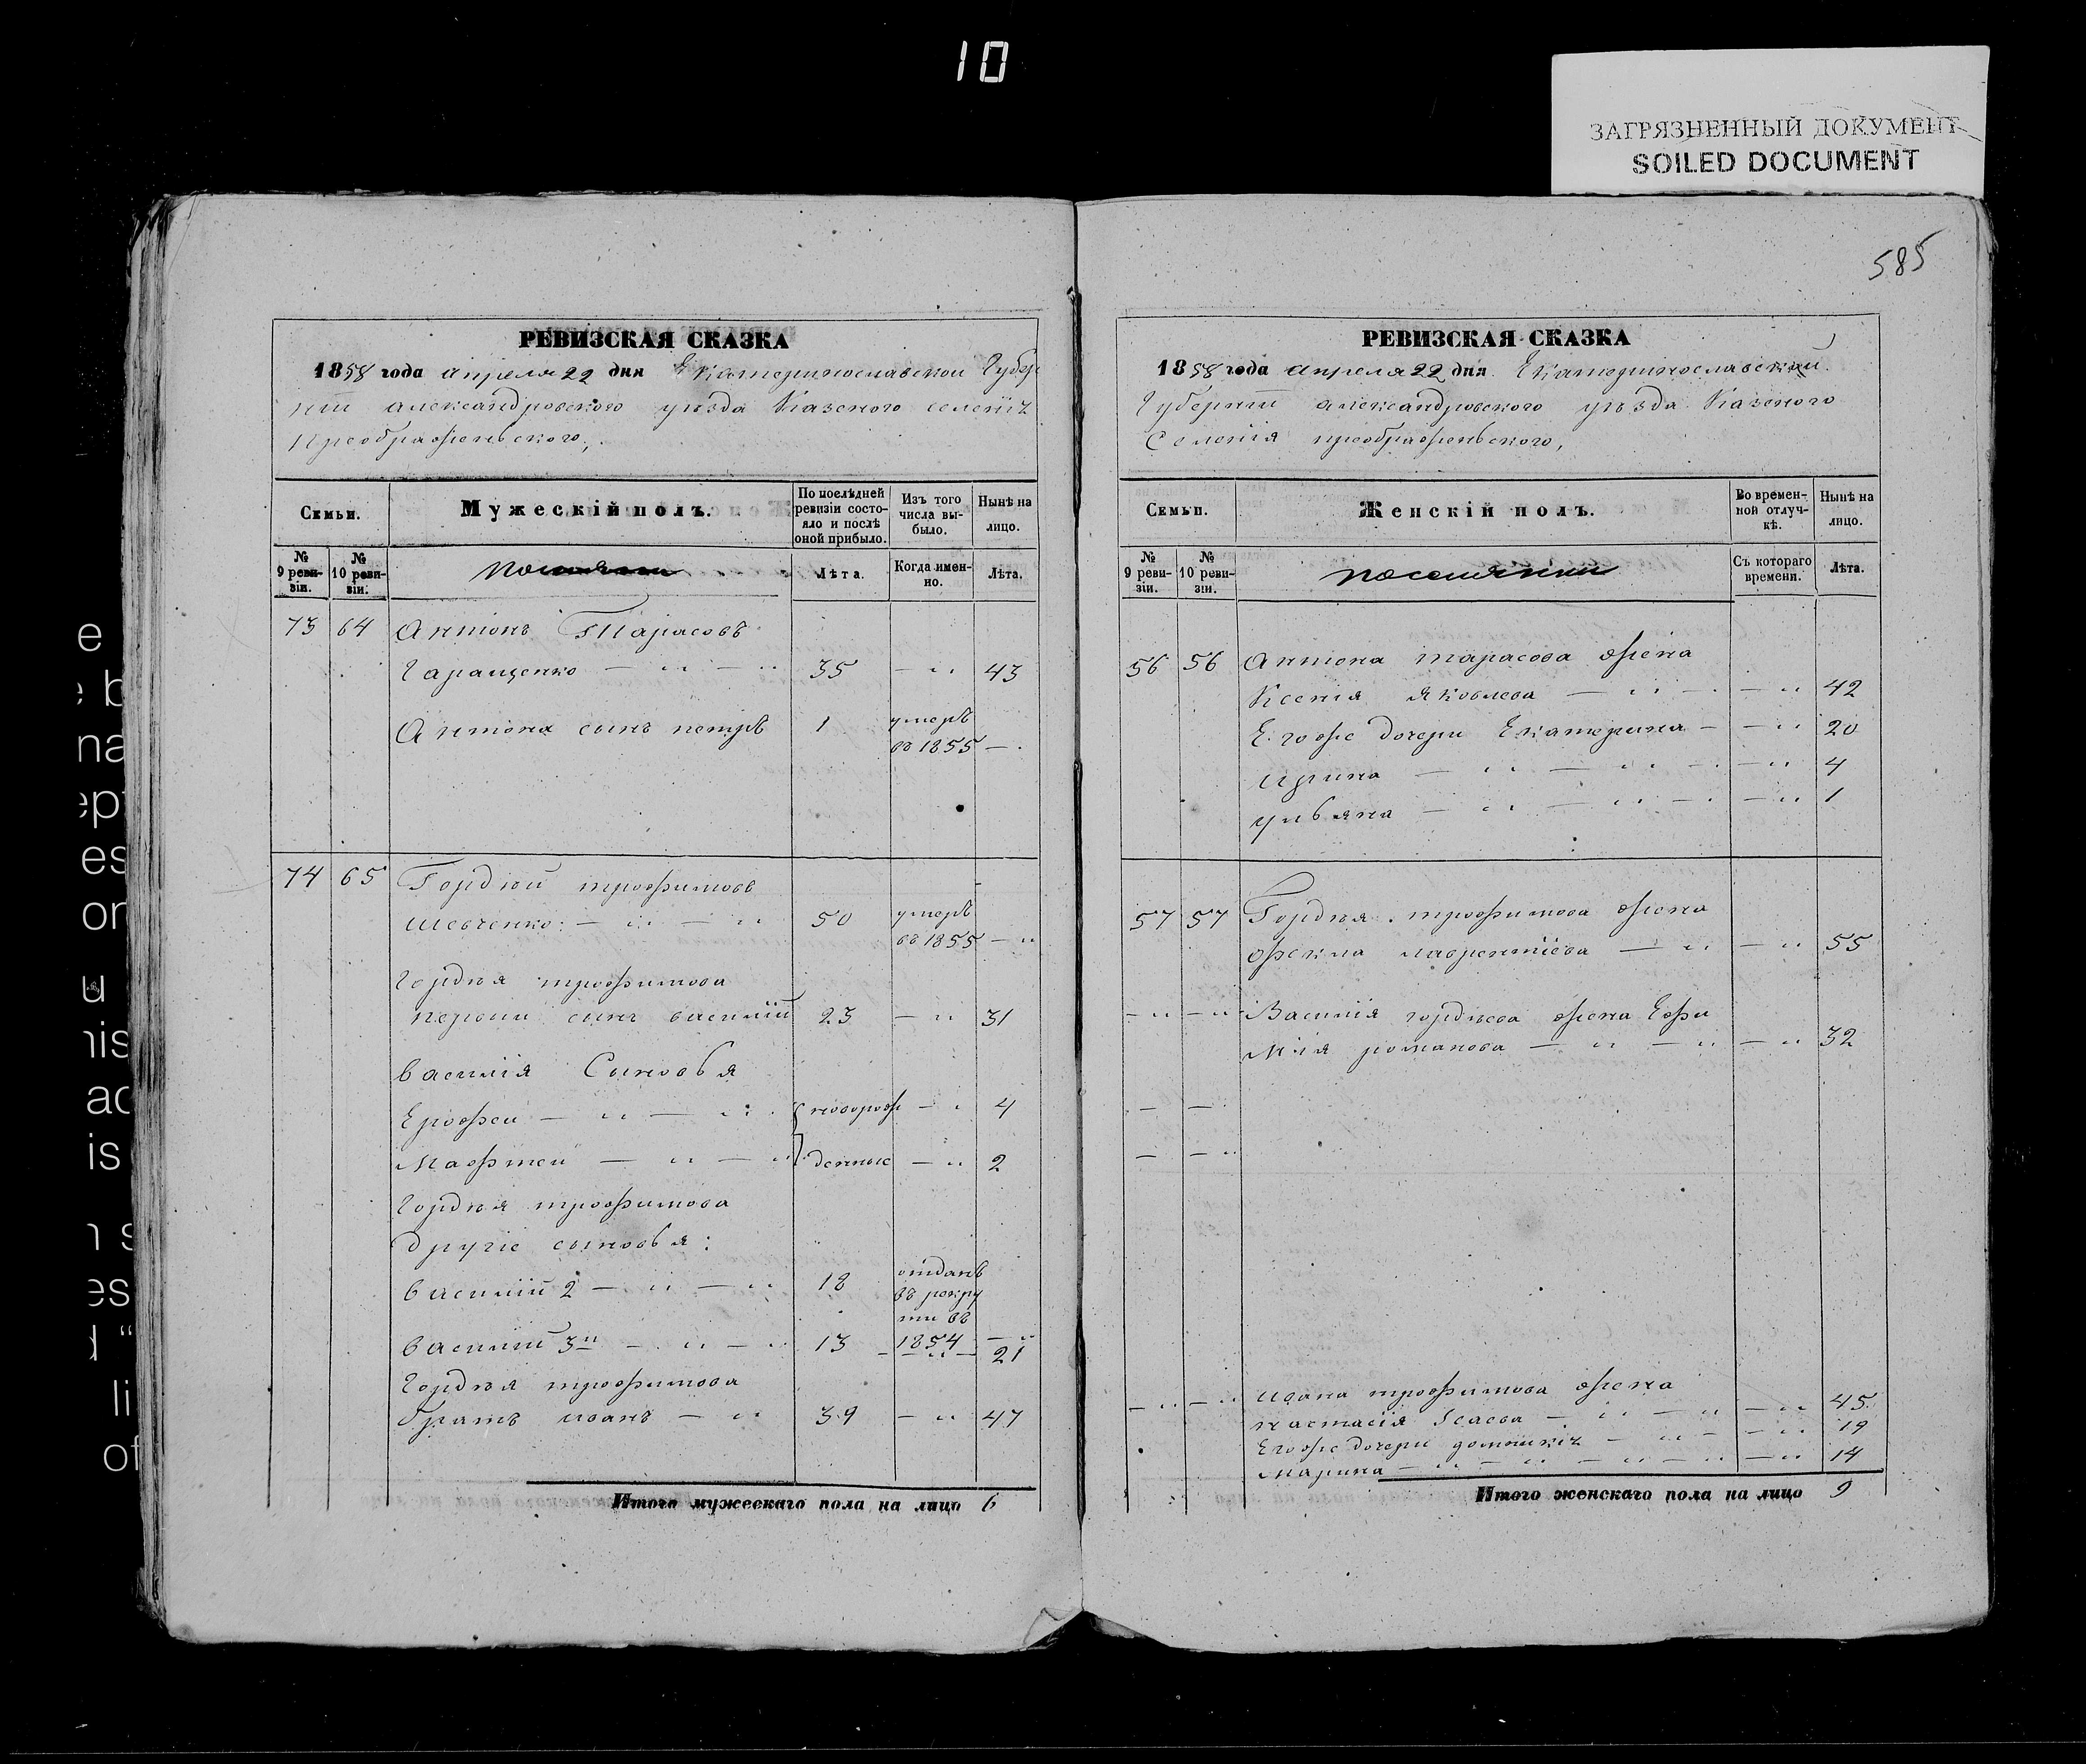 10
ЗАГРЯЗНЕННЫЙ ДОКУМЕНТ
SOILED DOCUMENT
585
РЕВИЗСКАЯ СКАЗКА
1858 года апреля 22 дня Екатеринославской Губер
нiи александровского уѣзда Казеного селенiя
преображеньского,
Семьи.
Мужескій полъ.
По послѣдней ревизіи состояло и послѣ оной прибыло.
Изъ того числа выбыло.
Нынѣ на лицо.
№ 9 ревизіи.
№ 10 ревизіи.
Лѣта.
Когда именно.
Лѣта.
73 64 Антонъ Тарасовъ
Гаращенко — " — " 35 — " 43
Антона сынъ петръ 1 умеръ
въ 1855 —
74 65 Гордѣй трофимовъ
шевченко — " — " 50 умеръ
въ 1855 — "
Гордѣя трофимова
первый сынъ василій 23 — " 31
василія Сыновья
Ерофей — " — " новорож — " 4
Мафтей — " — " денные — " 2
Гордѣя трофимова
другіе сыновья:
василій 2 — " — " 18 отданъ
въ рекру
ты въ
василій 3й — " — " 13 1854 — "
— " — 21
Гордѣя трофимова
братъ иванъ — " 39 — " 47
Итого мужескаго пола на лицо 6
РЕВИЗСКАЯ СКАЗКА
1858 года апреля 22 дня Екатеринославской
Губерніи александровского уѣзда Казеного
Селенія преображеньского,
Семьи.
Женскій полъ.
Во временной отлучкѣ.
Нынѣ на лицо.
№ 9 ревизіи.
№ 10 ревизіи.
поселянки
Съ котораго времени.
Лѣта.
56 56 Антона тарасова жена
Ксенія Яковлева — " — — " 42
Его же дочери Екатерина — — " 20
ирина — " — " — — " 4
ульяна — " — " — — " 1
57 57 Гордѣя трофимова жена
фекла лаврентіева — " — " 55
— " — " Василія гордѣева жена Ефи
мія романова — " — " — " 32
— —
— — "
— " — " ивана трофимова жена
настасія Исаева — " — " — " 45
Его же дочери домникія — " — — " 19
марина — " — " — " — " 14
Итого женскаго пола на лицо 9